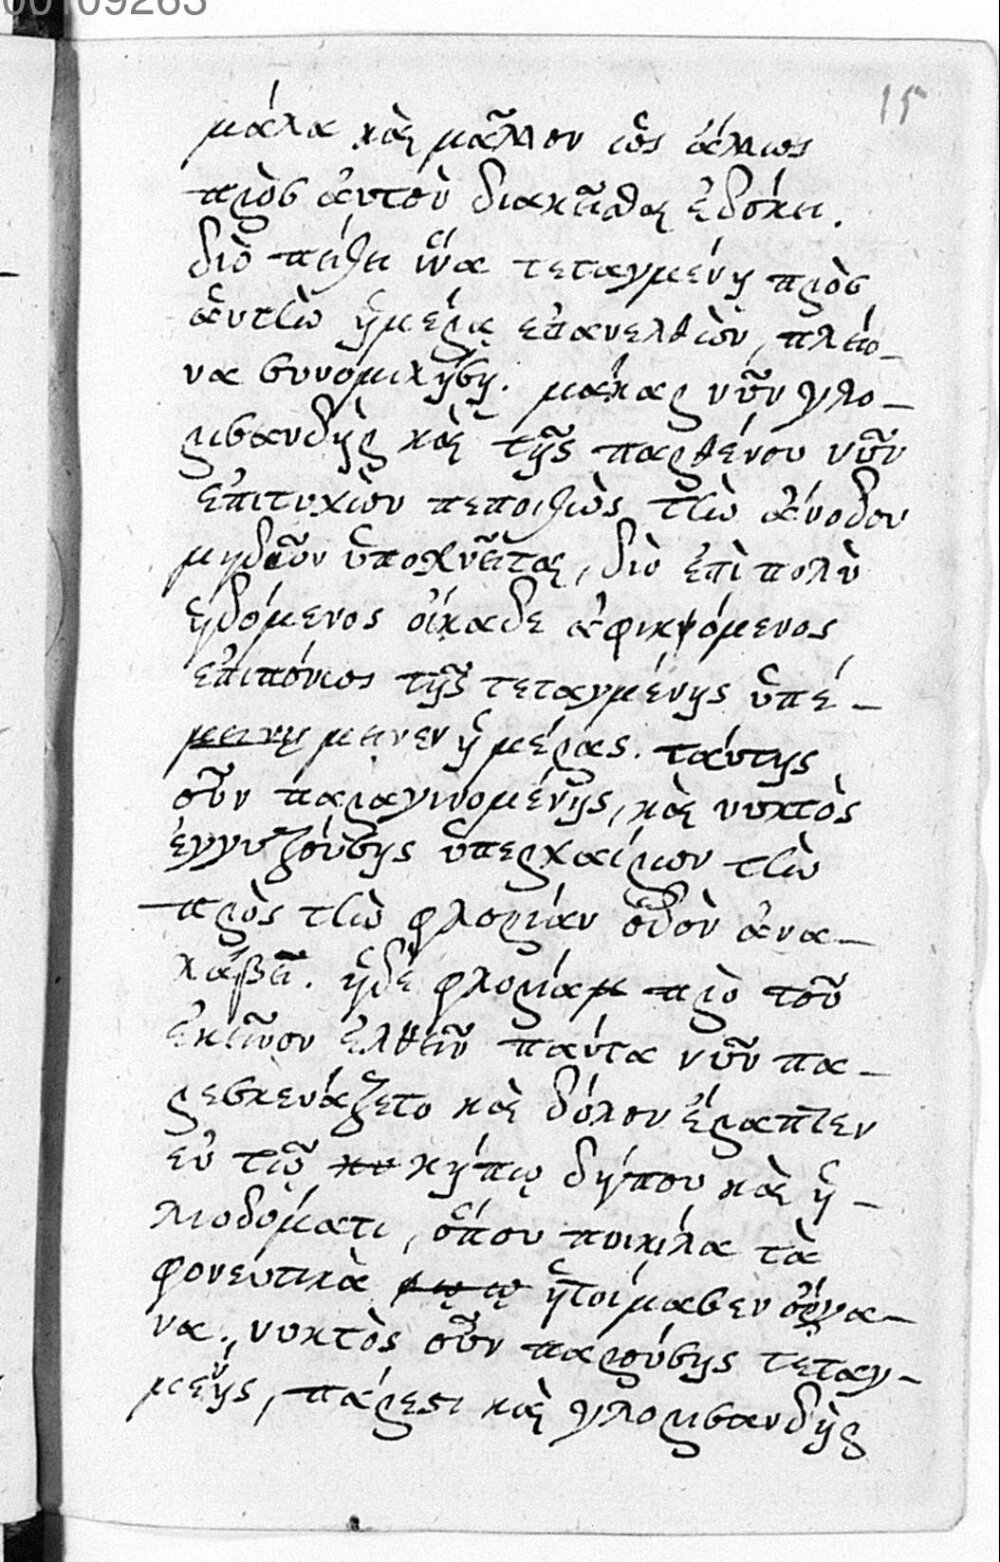 00109263
15
μάλα καὶ μᾶλλον ὡς ἄλλως
πρὸς ἀυτὸν διακεῖσθαι ἐδόκει.
διὸ πείθει ἵνα τεταγμένῃ πρὸς
ἀυτὴν ἡμέρᾳ ἐπανελθὼν, πλείο-
να συνομιλήσῃ. μάκαρ νῦν γλο-
ρισανδὴρ καὶ τῆς παρθένου νῦν
ἐπιτυχὼν πεποιθὼς τὴν ἄνοδον
μηδοῦν ὑποκνεῖται, διὸ ἐπὶ πολὺ
ἡδόμενος οἴκαδε ἀφικψόμενος
ἐπιπόνως τῆς τεταγμένης ὑπέ-
μεινεν ἡμέρας. τάυτης
οὖν παραγινομένης, καὶ νυκτὸς
ἐγγυζόυσης ὑπερχαίρων τὴν
πρὸς τὴν φλορίαν ὁδὸν ἀνα-
λάβει. ἡδὲ φλορία πρὸ τοῦ
ἐκεῖνον ἐλθεῖν πάντα νῦν πα-
ρεσκευάζετο καὶ δόλον ἔραπτεν
ἐν τῷ κήπῳ δήπου καὶ ἡ-
λιοδόματι, ὅπου ποικίλα τὰ
φονευτικὰ ἡτοίμασεν ὄργα-
να., νυκτὸς οὖν παρούσης τεταγ-
μένης, πάρεσι καὶ γλορισανδὴρ